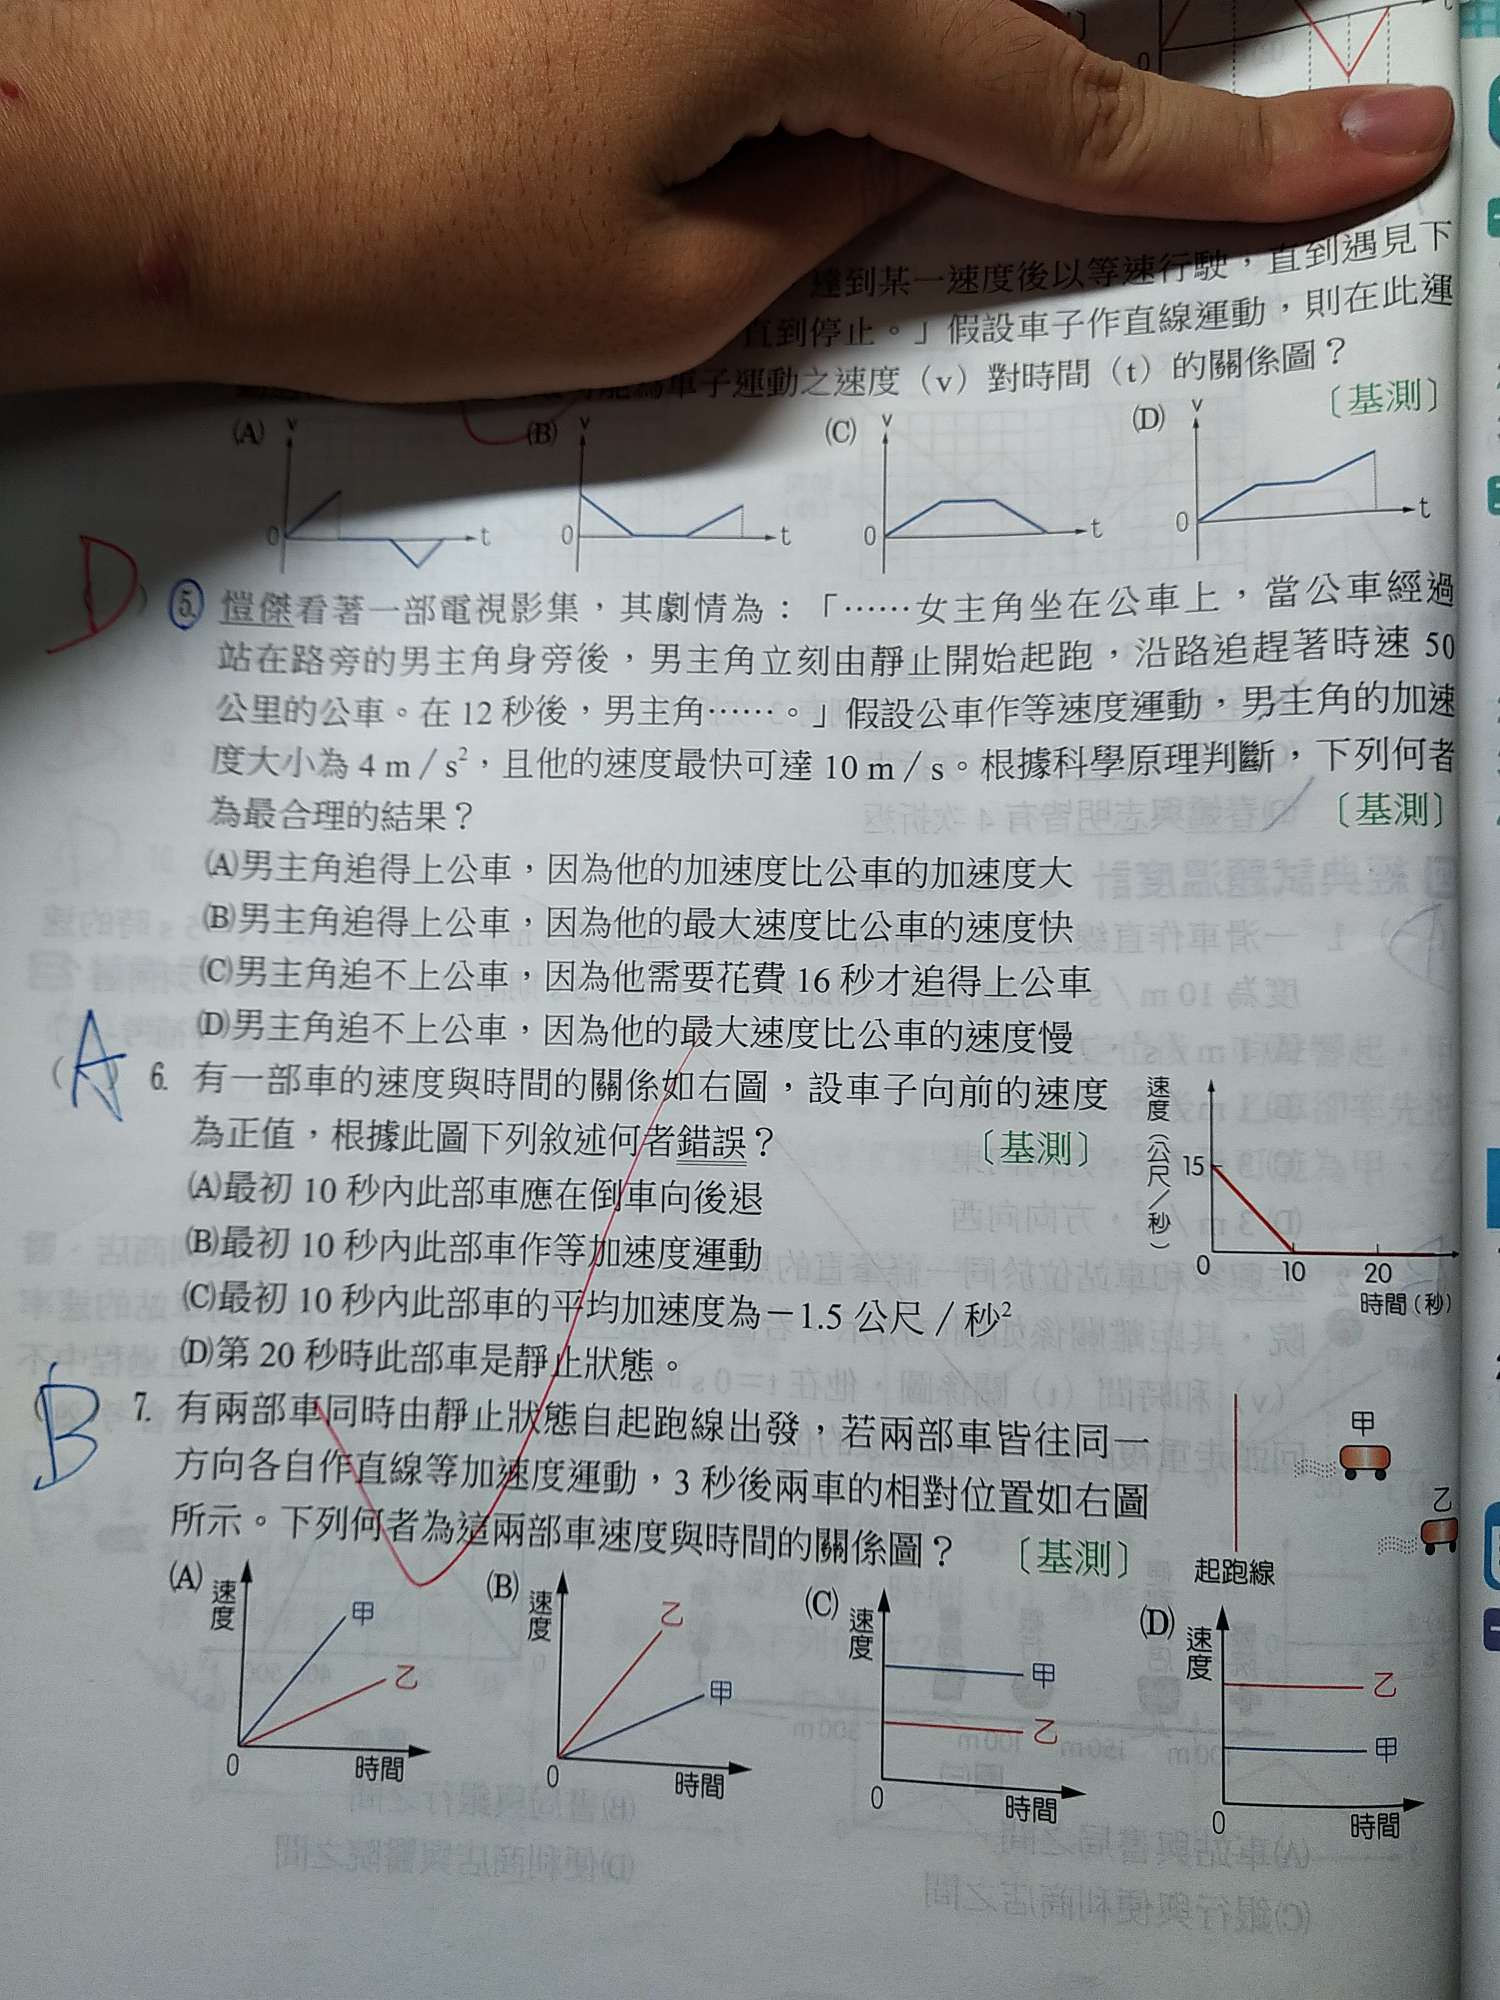 0
達到某一速度後以等速行駛，直到遇見下
直到停止。」假設車子作直線運動，則在此運
為車子運動之速度（v）對時間（t）的關係圖？
〔基測〕
(A) v 0 t
(B) v 0 t
(C) v 0 t
(D) v 0 t
D
5. 愷傑看著一部電視影集，其劇情為：「……女主角坐在公車上，當公車經過
站在路旁的男主角身旁後，男主角立刻由靜止開始起跑，沿路追趕著時速 50
公里的公車。在 12 秒後，男主角……。」假設公車作等速度運動，男主角的加速
度大小為 4 m／s²，且他的速度最快可達 10 m／s。根據科學原理判斷，下列何者
為最合理的結果？ 〔基測〕
(A)男主角追得上公車，因為他的加速度比公車的加速度大
(B)男主角追得上公車，因為他的最大速度比公車的速度快
(C)男主角追不上公車，因為他需要花費 16 秒才追得上公車
(D)男主角追不上公車，因為他的最大速度比公車的速度慢
(A) 6. 有一部車的速度與時間的關係如右圖，設車子向前的速度
為正值，根據此圖下列敘述何者錯誤？ 〔基測〕
(A)最初 10 秒內此部車應在倒車向後退
(B)最初 10 秒內此部車作等加速度運動
(C)最初 10 秒內此部車的平均加速度為－1.5 公尺／秒²
(D)第 20 秒時此部車是靜止狀態。
速度（公尺／秒）
15
0 10 20
時間（秒）
(B) 7. 有兩部車同時由靜止狀態自起跑線出發，若兩部車皆往同一
方向各自作直線等加速度運動，3 秒後兩車的相對位置如右圖
所示。下列何者為這兩部車速度與時間的關係圖？ 〔基測〕
甲
乙
起跑線
(A) 速度 甲 乙 0 時間
(B) 速度 乙 甲 0 時間
(C) 速度 甲 乙 0 時間
(D) 速度 乙 甲 0 時間